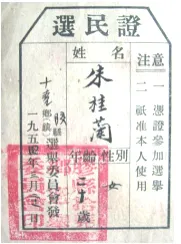 選民證
姓名
朱桂蘭
年齡
二十歲
性別
女
注意
一 憑證參加選舉
二 祇准本人使用
選舉委員會發
一九五四年